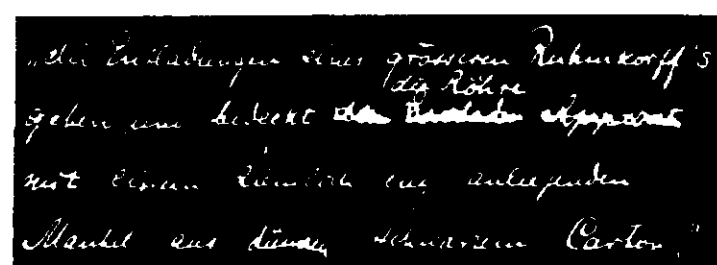 „die Entladungen eines grösseren Ruhmkorff's
die Röhre
gehen und bedeckt Apparat
mit einem ziemlich eng anliegenden
Mantel aus dünnem schwarzem Carton,"